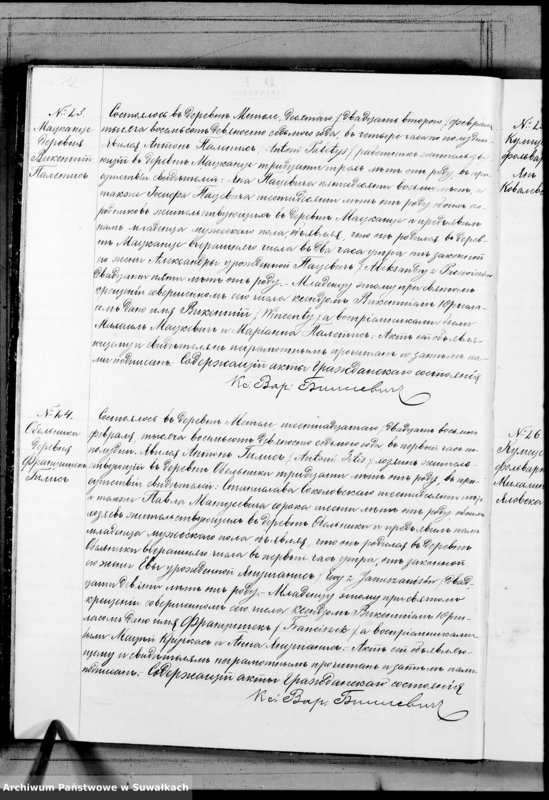 № 23.
Мацканце
деревня
Викентій
Палетисъ
Состоялось въ деревнѣ Метеле, десятаго /двадцать втораго/ февраля
тысяча восемьсотъ девяносто седьмого года, въ четыре часа по полудни.
Явился Антонъ Палетисъ /Antoni
работникъ жительству-
ющій въ деревнѣ Мацканце тридцати трехъ лѣтъ отъ роду, въ при-
сутствіи свидѣтелей: Яна Пацевича пятидесяти восьми лѣтъ, а
также Іосифа Пацевича шестидесяти лѣтъ отъ роду обоихъ
жительствующихъ въ деревнѣ Мацканце и предъявилъ
намъ младенца мужескаго пола объявляя, что онъ родился въ дерев-
нѣ Мацканце вчерашняго числа въ два часа утра отъ законной
его жены Александры урожденной Пацевичъ /Aleksandry z
двадцати пяти лѣтъ отъ роду.- Младенцу этому при святомъ
крещеніи совершенномъ сего числа ксендзомъ Викентіемъ
дано имя Викентій /Wincenty/ а воспріемниками были
Михаилъ Мацкевичъ и Маріанна Палетисъ: Актъ сей объявля-
ющему и свидѣтелямъ неграмотнымъ прочитанъ и затѣмъ на-
ми подписанъ. Содержащій акты Гражданскаго состоянія
Кс: Вар: Билевичъ
№ 24.
Обельники
деревня
Францишекъ
Гилисъ
Состоялось въ деревнѣ Метеле шестнадцатаго /двадцать восьмого/
февраля, тысяча восемьсотъ девяносто седьмого года, въ первый часъ по
полудни. Явился Антонъ Гилисъ /Antoni
житель-
ствующій въ деревнѣ Обельники тридцати лѣтъ отъ роду, въ при-
сутствіи свидѣтелей: Станислава Соколовскаго шестидесяти
а также Павла Матусевича сорока шести лѣтъ отъ роду обоихъ
хозяевъ жительствующихъ въ деревнѣ Обельники и предъявилъ намъ
младенца мужескаго пола объявляя, что онъ родился въ деревнѣ
Обельники вчерашняго числа въ первый часъ утра, отъ законной
его жены Евы урожденной
/Ewy z
двад-
цати девяти лѣтъ отъ роду.- Младенцу этому при святомъ
крещеніи совершенномъ сего числа ксендзомъ Викентіемъ
дано имя Францишекъ /Franciszek/ а воспріемниками
были Мацѣй
и Анна
Актъ сей объявляю-
щему и свидѣтелямъ неграмотнымъ прочитанъ и затѣмъ нами
подписанъ. Содержащій акты Гражданскаго состоянія
Кс: Вар: Билевичъ
№ 26
Archiwum Państwowe w Suwałkach